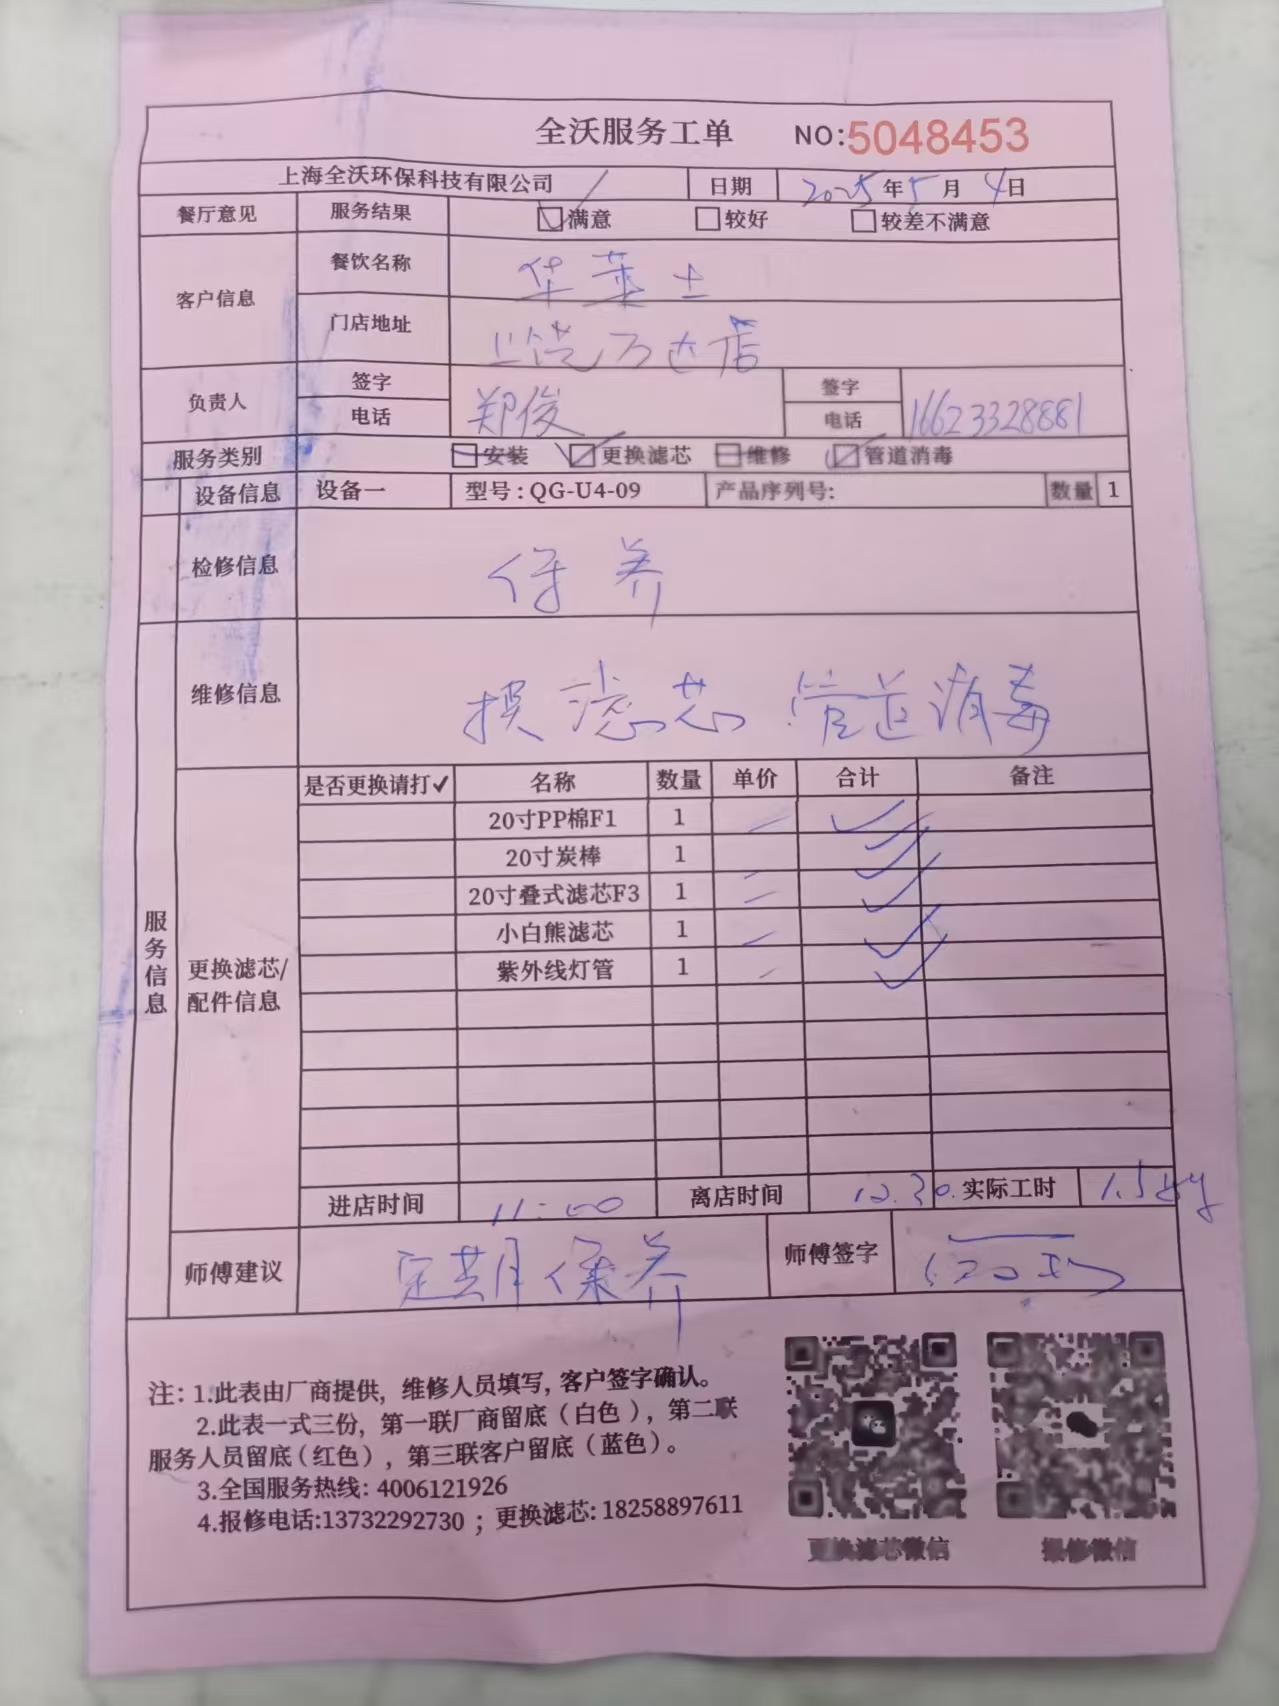 全沃服务工单 NO:5048453
上海全沃环保科技有限公司 日期 2025年5月4日
餐厅意见 服务结果 满意 较好 较差不满意
客户信息 餐饮名称 华莱士
门店地址 上饶万达店
负责人 签字 郑俊 签字
电话 电话 16623328881
服务类别 安装 更换滤芯 维修 管道消毒
设备信息 设备一 型号:QG-U4-09 产品序列号: 数量 1
检修信息 保养
维修信息 换滤芯 管道消毒
服务信息
更换滤芯/配件信息
是否更换请打✓ 名称 数量 单价 合计 备注
20寸PP棉F1 1 ✓
20寸炭棒 1 ✓
20寸叠式滤芯F3 1 ✓
小白熊滤芯 1 ✓
紫外线灯管 1 ✓
进店时间 11:00 离店时间 12.30. 实际工时 1.5
师傅建议 定期保养 师傅签字
注:1.此表由厂商提供,维修人员填写,客户签字确认。
2.此表一式三份,第一联厂商留底(白色),第二联
服务人员留底(红色),第三联客户留底(蓝色)。
3.全国服务热线:4006121926
4.报修电话:13732292730;更换滤芯:18258897611
更换滤芯微信 报修微信